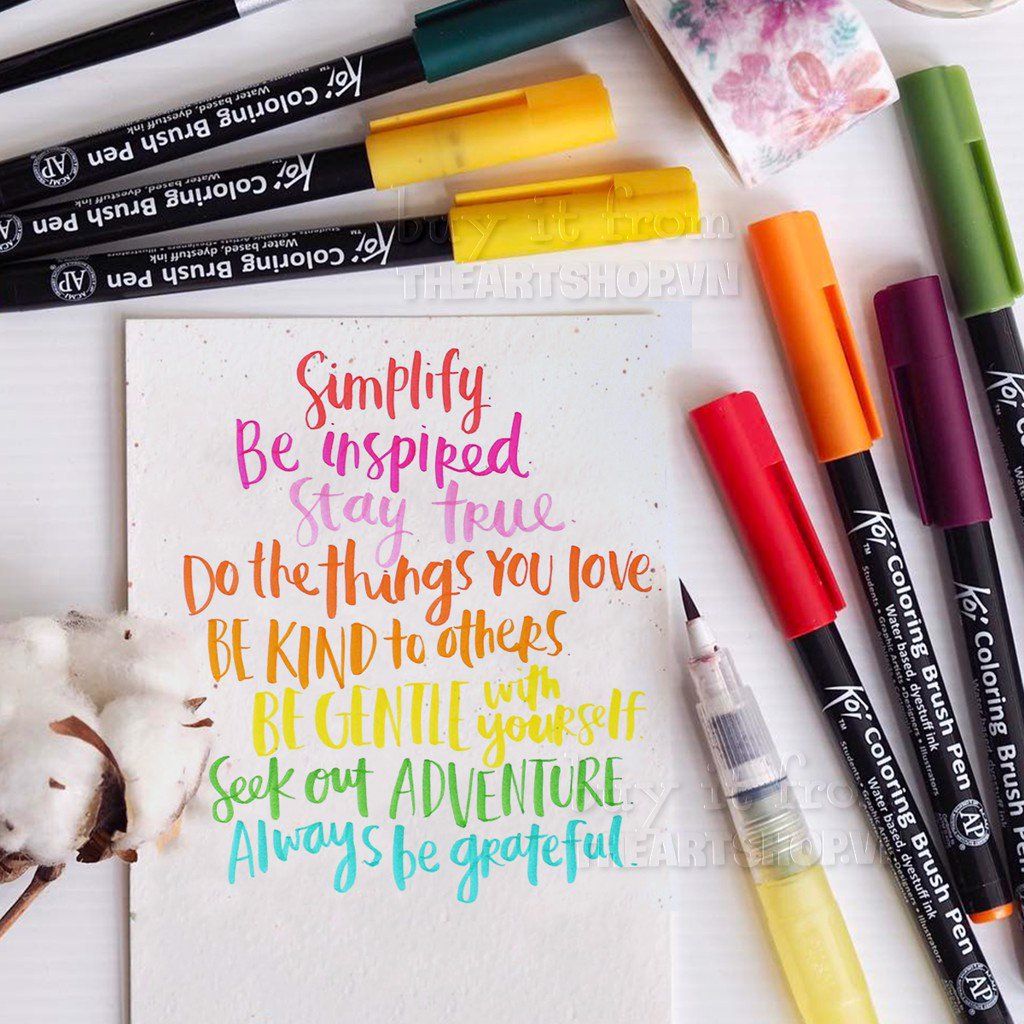 Koi™ Coloring Brush Pen
Water based, dyestuff ink
AP
Koi™ Coloring Brush Pen
Water based, dyestuff ink
Koi™ Coloring Brush Pen
Water based, dyestuff ink
AP
buy it from
THEARTSHOP.VN
Simplify.
Be inspired.
Stay true.
Do the things you love.
BE KIND to others.
BE GENTLE with yourself.
Seek out ADVENTURE.
Always be grateful.
buy it from
THEARTSHOP.VN
Koi™ Coloring Brush Pen
Water based, dyestuff ink
Students • Graphic Artists • Designers • Illustrators
AP
Koi™ Coloring Brush Pen
Water based, dyestuff ink
Students • Graphic Artists • Designers • Illustrators
AP
Koi™ Coloring Brush Pen
Koi